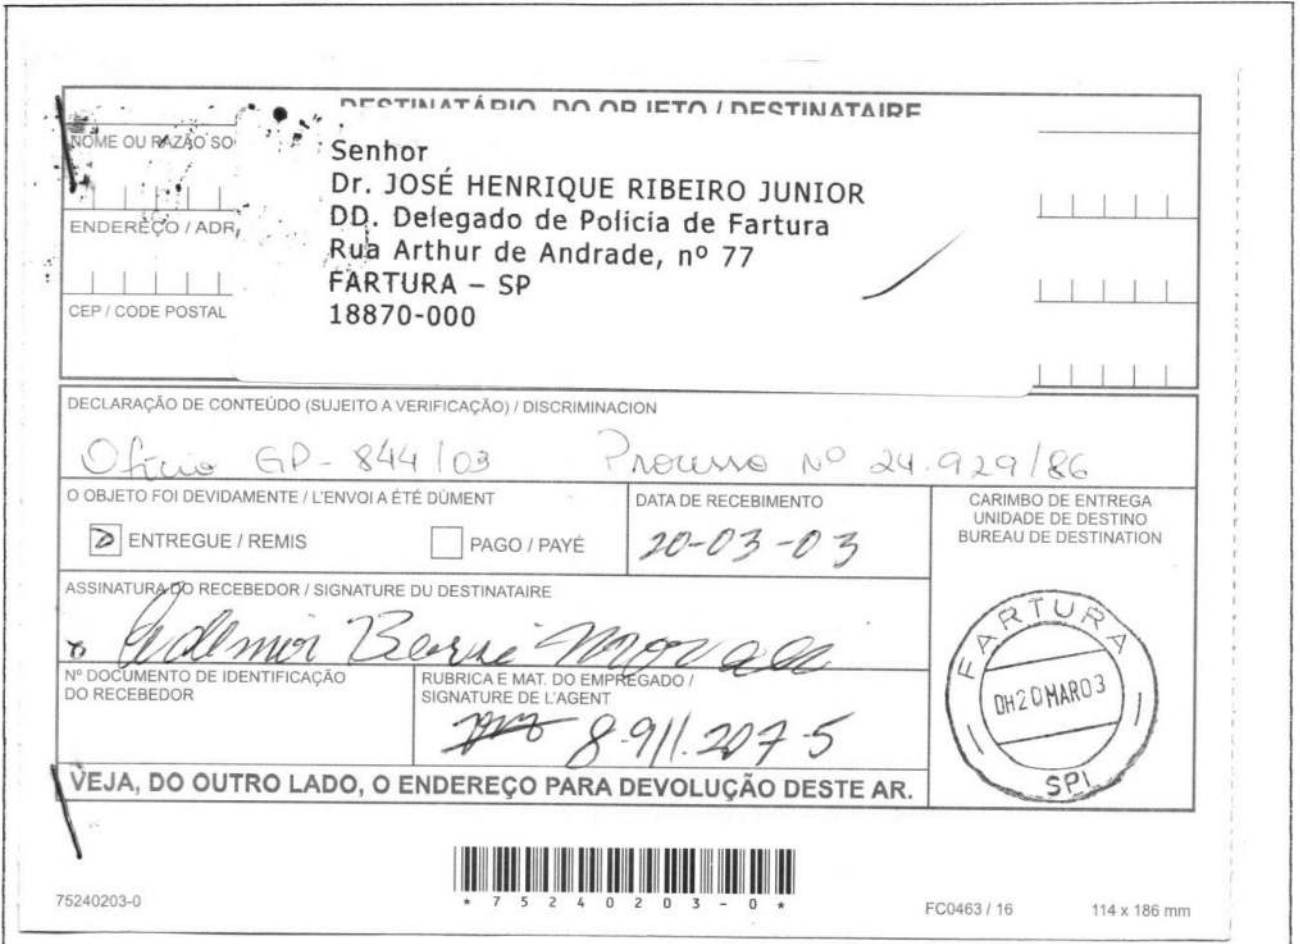 DESTINATÁRIO DO OBJETO / DESTINATAIRE
NOME OU RAZÃO SO
Senhor
Dr. JOSÉ HENRIQUE RIBEIRO JUNIOR
DD. Delegado de Policia de Fartura
ENDEREÇO / ADR
Rua Arthur de Andrade, nº 77
FARTURA – SP
CEP / CODE POSTAL
18870-000
DECLARAÇÃO DE CONTEÚDO (SUJEITO A VERIFICAÇÃO) / DISCRIMINACION
Ofício GP-844/03 Processo Nº 24.929/86
O OBJETO FOI DEVIDAMENTE / L'ENVOI A ÉTÉ DÛMENT
ENTREGUE / REMIS
PAGO / PAYÉ
DATA DE RECEBIMENTO
20-03-03
CARIMBO DE ENTREGA
UNIDADE DE DESTINO
BUREAU DE DESTINATION
ASSINATURA DO RECEBEDOR / SIGNATURE DU DESTINATAIRE
Nº DOCUMENTO DE IDENTIFICAÇÃO
DO RECEBEDOR
RUBRICA E MAT. DO EMPREGADO /
SIGNATURE DE L'AGENT
8.911.207-5
FARTURA
DH20MAR03
SPI
VEJA, DO OUTRO LADO, O ENDEREÇO PARA DEVOLUÇÃO DESTE AR.
75240203-0
* 7 5 2 4 0 2 0 3 - 0 *
FC0463 / 16
114 x 186 mm